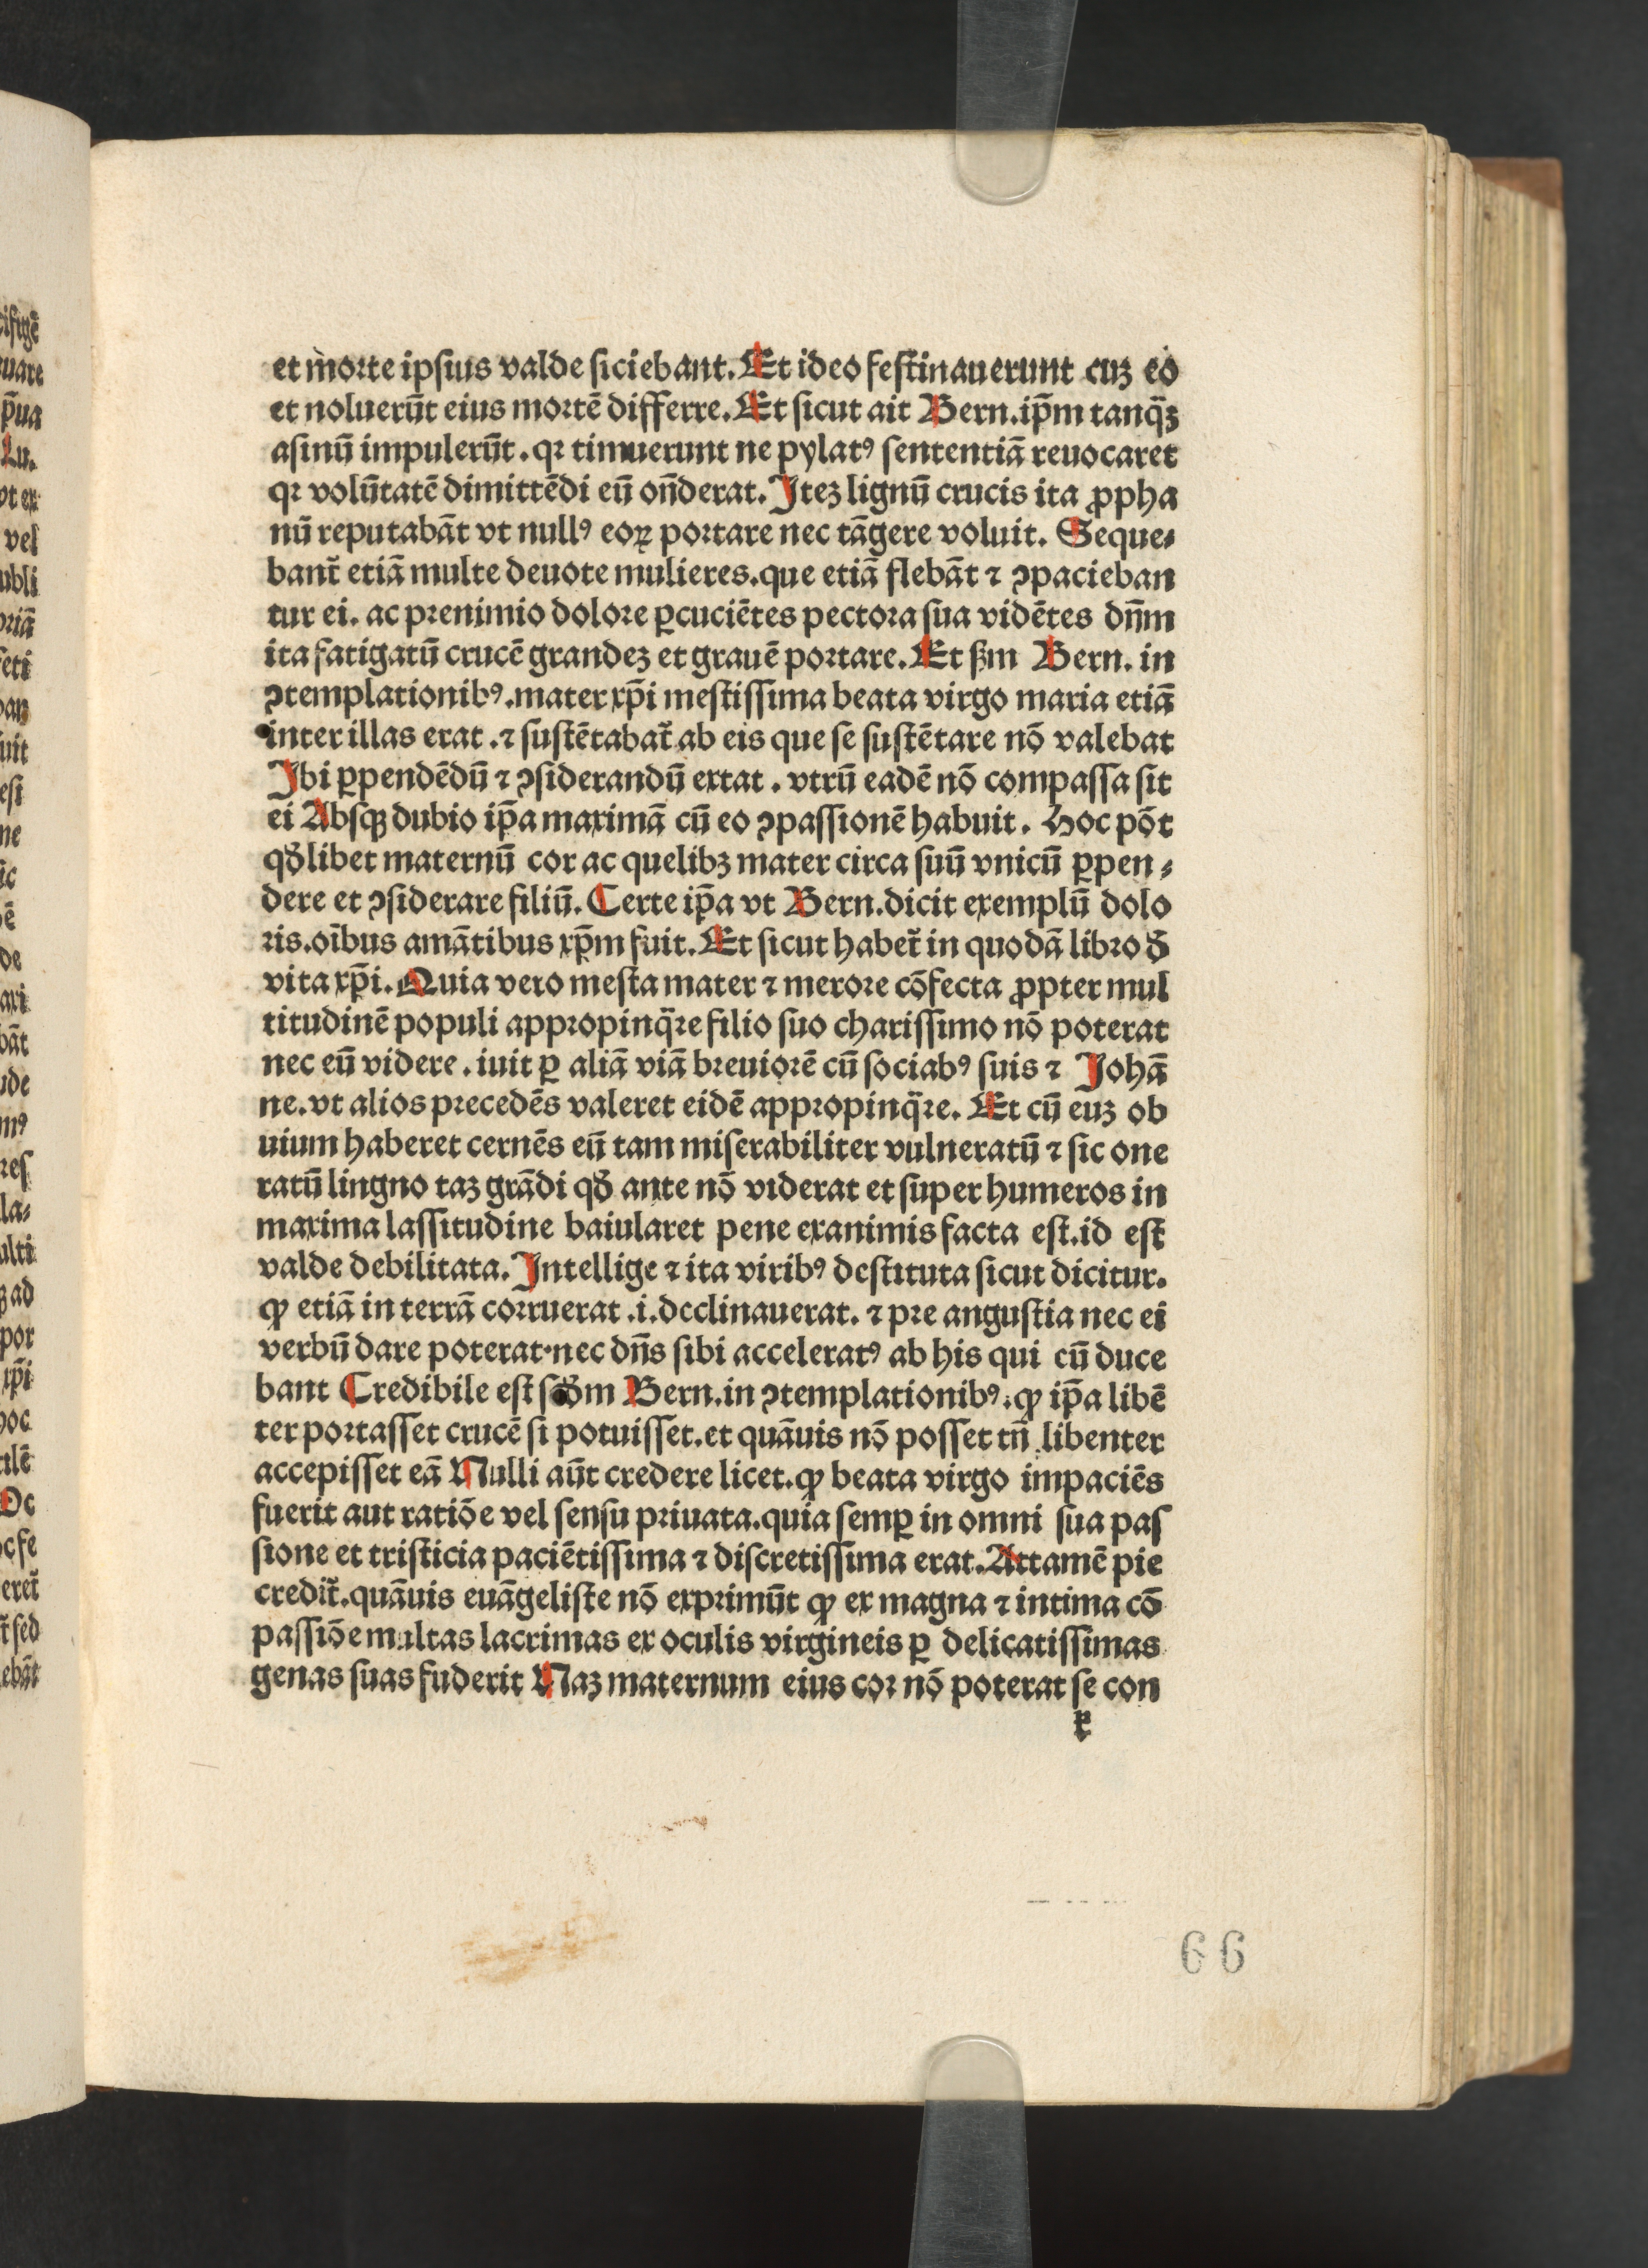 et morte ipsius valde siciebant. Et ideo festinauerunt cuꝫ eo
et noluerūt eius mortē differre. Et sicut ait Bern. ip̄m tanq̄ꝫ
asinū impulerūt. qꝛ timuerunt ne pylatꝰ sententiā reuocaret
qꝛ volūtatē dimittēdi eū on̄derat. Iteꝫ lignū crucis ita ꝓpha
nū reputabāt vt nullꝰ eoꝝ portare nec tāgere voluit. Seque⸗
bant᷑ etiā multe deuote mulieres. que etiā flebāt ⁊ ꝯpacieban
tur ei. ac prenimio dolore ꝑcuciētes pectora sua vidētes dn̄m
ita fatigatū crucē grandeꝫ et grauē portare. Et ẞm Bern. in
ꝯtemplationibꝰ. mater xp̄i mestissima beata virgo maria etiā
inter illas erat. ⁊ sustētabat᷑ ab eis que se sustētare nō valebat
Ibi ꝑpendēdū ⁊ ꝯsiderandū extat. vtrū eadē nō compassa sit
ei Absqꝫ dubio ip̄a maximā cū eo ꝯpassionē habuit. Hoc pōt
qđlibet maternū cor ac quelibꝫ mater circa suū vnicū ꝑpen⸗
dere et ꝯsiderare filiū. Certe ip̄a vt Bern. dicit exemplū dolo
ris. oībus amātibus xp̄m fuit. Et sicut habet᷑ in quodā libro đ
vita xp̄i. Quia vero mesta mater ⁊ merore cōfecta ꝓpter mul
titudinē populi appropinq̄re filio suo charissimo nō poterat
nec eū videre. iuit ꝑ aliā viā breuiorē cū sociabꝰ suis ⁊ Johā
ne. vt alios precedēs valeret eidē appropinq̄re. Et cū euꝫ ob
uium haberet cernēs eū tam miserabiliter vulneratū ⁊ sic one
ratū lingno taꝫ grādi qđ ante nō viderat et super humeros in
maxima lassitudine baiularet pene exanimis facta est. id est
valde debilitata. Intellige ⁊ ita viribꝰ destituta sicut dicitur.
ꝙ etiā in terrā corruerat .i. declinauerat. ⁊ pre angustia nec ei
verbū dare poterat. nec dn̄s sibi acceleratꝰ ab his qui eū duce
bant Credibile est scđm Bern. in ꝯtemplationibꝰ. ꝙ ip̄a libē
ter portasset crucē si potuisset. et quāuis nō posset tn̄ libenter
accepisset eā Nulli aūt credere licet. ꝙ beata virgo impaciēs
fuerit aut ratiōe vel sensu priuata. quia semꝑ in omni sua pas
sione et tristicia paciētissima ⁊ discretissima erat. Attamē pie
credit᷑. quāuis euāgeliste nō exprimūt ꝙ ex magna ⁊ intima cō
passiōe multas lacrimas ex oculis virgineis ꝑ delicatissimas
genas suas fuderit Naꝫ maternum eius cor nō poterat se con
r
66